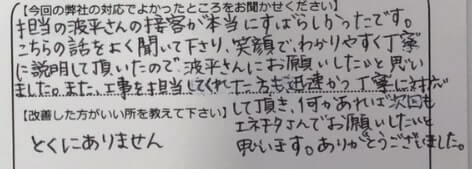 【今回の弊社の対応でよかったところをお聞かせください】
担当の波平さんの接客が本当にすばらしかったです。
こちらの話をよく聞いて下さり、笑顔で、わかりやすく丁寧
に説明して頂いたので波平さんにお願いしたいと思い
ました。また、工事を担当してくれた方も迅速かつ丁寧に対応
して頂き、何かあれば次回も
エネチタさんでお願いしたいと
思います。ありがとうございました。
【改善した方がいい所を教えて下さい】
とくにありません